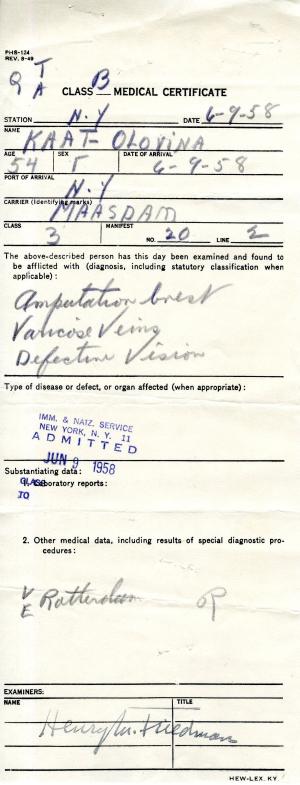 PHS-124
REV. 8-49
Q T A CLASS B MEDICAL CERTIFICATE
STATION N.Y DATE 6-9-58
NAME
KAAT- OLOVINA
AGE SEX DATE OF ARRIVAL
54 F 6-9-58
PORT OF ARRIVAL
N.Y
CARRIER (Identifying marks)
MAASDAM
CLASS MANIFEST
3 NO. 20 LINE 2
The above-described person has this day been examined and found to
be afflicted with (diagnosis, including statutory classification when
applicable):
Amputation brest
Varicose Veins
Defective Vision
Type of disease or defect, or organ affected (when appropriate):
IMM. & NATZ. SERVICE
NEW YORK, N. Y. 11
ADMITTED
JUN 9 1958
Substantiating data:
CLASS
1. Laboratory reports:
TO
2. Other medical data, including results of special diagnostic pro-
cedures:
V E Rotterdam R
EXAMINERS:
NAME TITLE
Henry M. Friedman
HEW-LEX. KY.